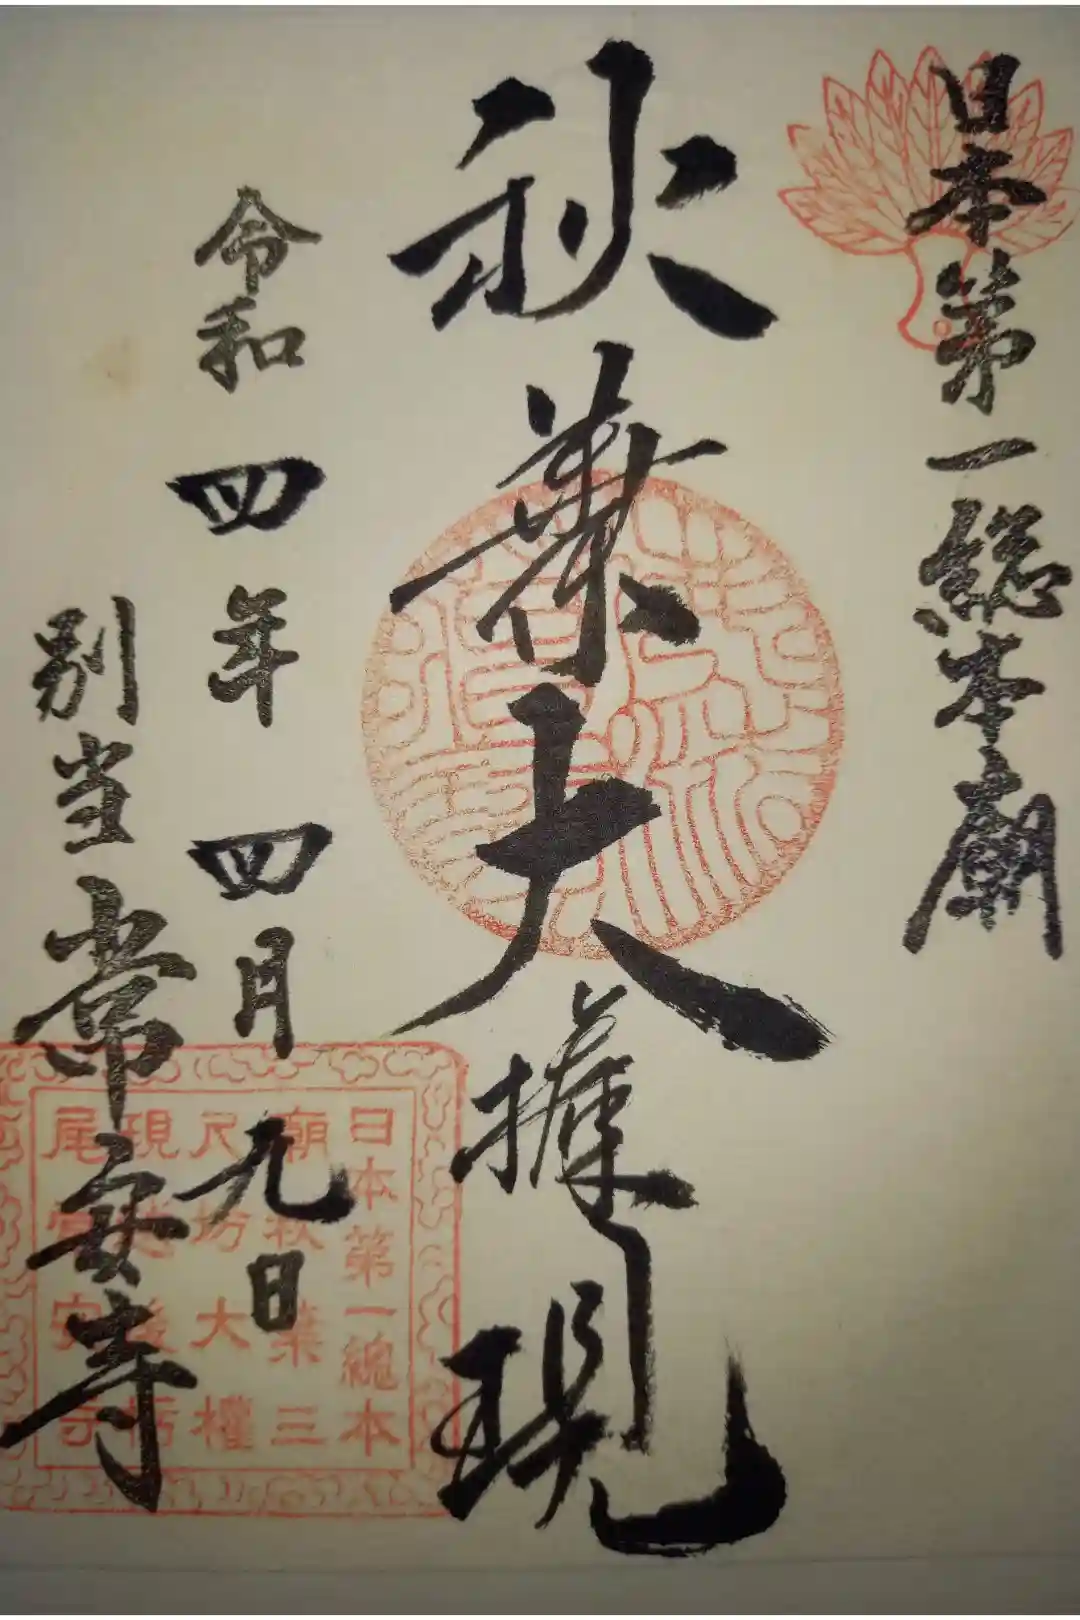 日本第一総本廟
秋葉大権現
令和四年四月九日
別当常安寺
日本第一總本
廟秋葉三
尺坊大權
現越後栃
尾常安寺